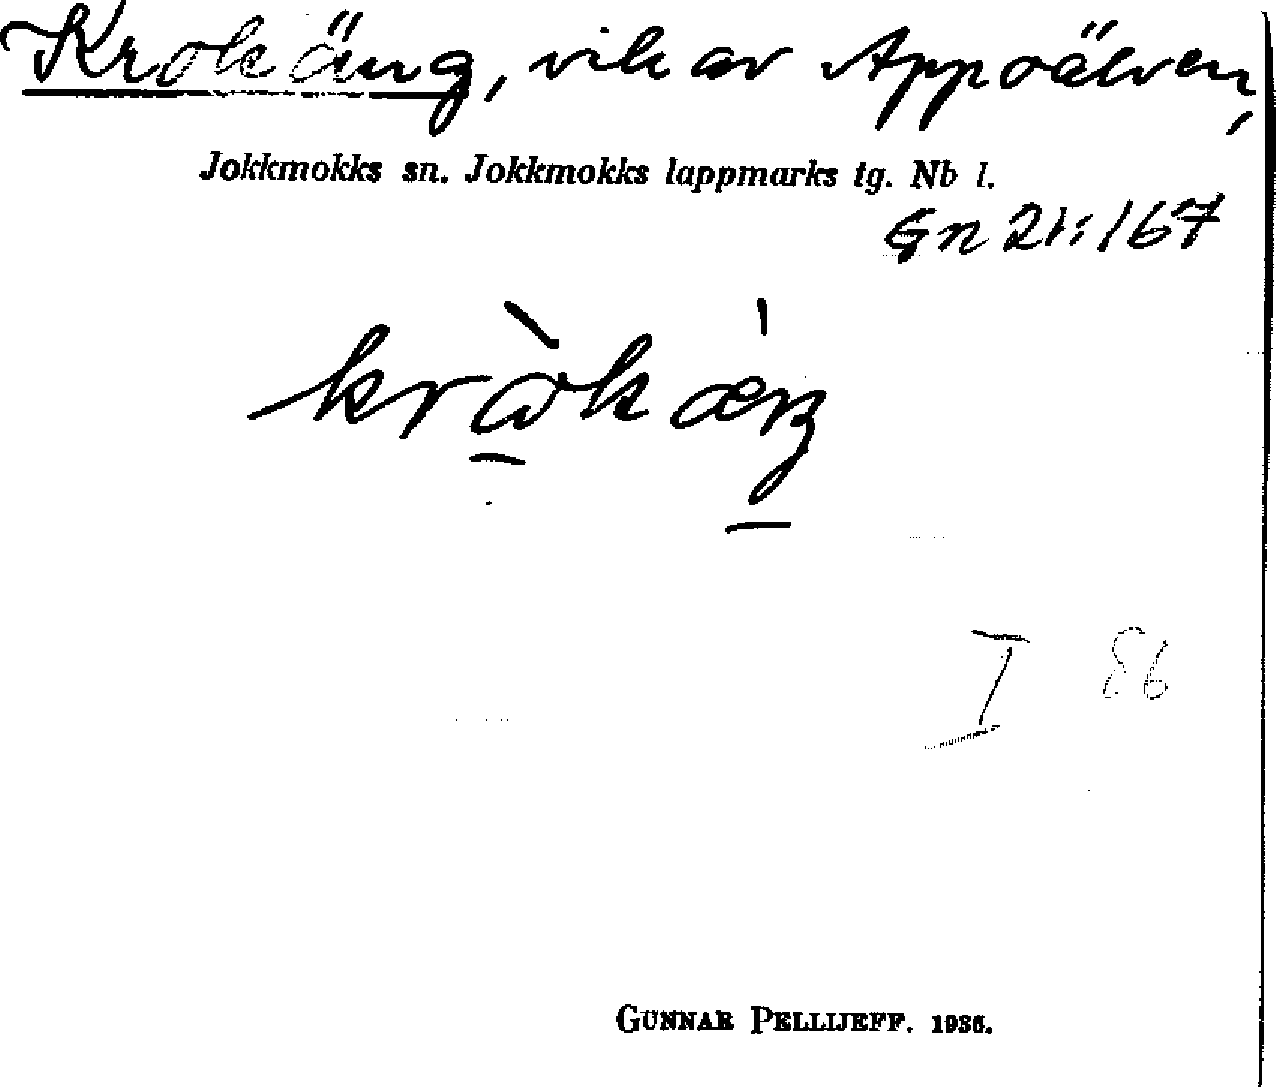 Krokäng, vik av Appoälven,
Jokkmokks sn. Jokkmokks lappmarks tg. Nb l.
Gn 21:167
I 86
GUNNAR PELLIJEFF. 1936.